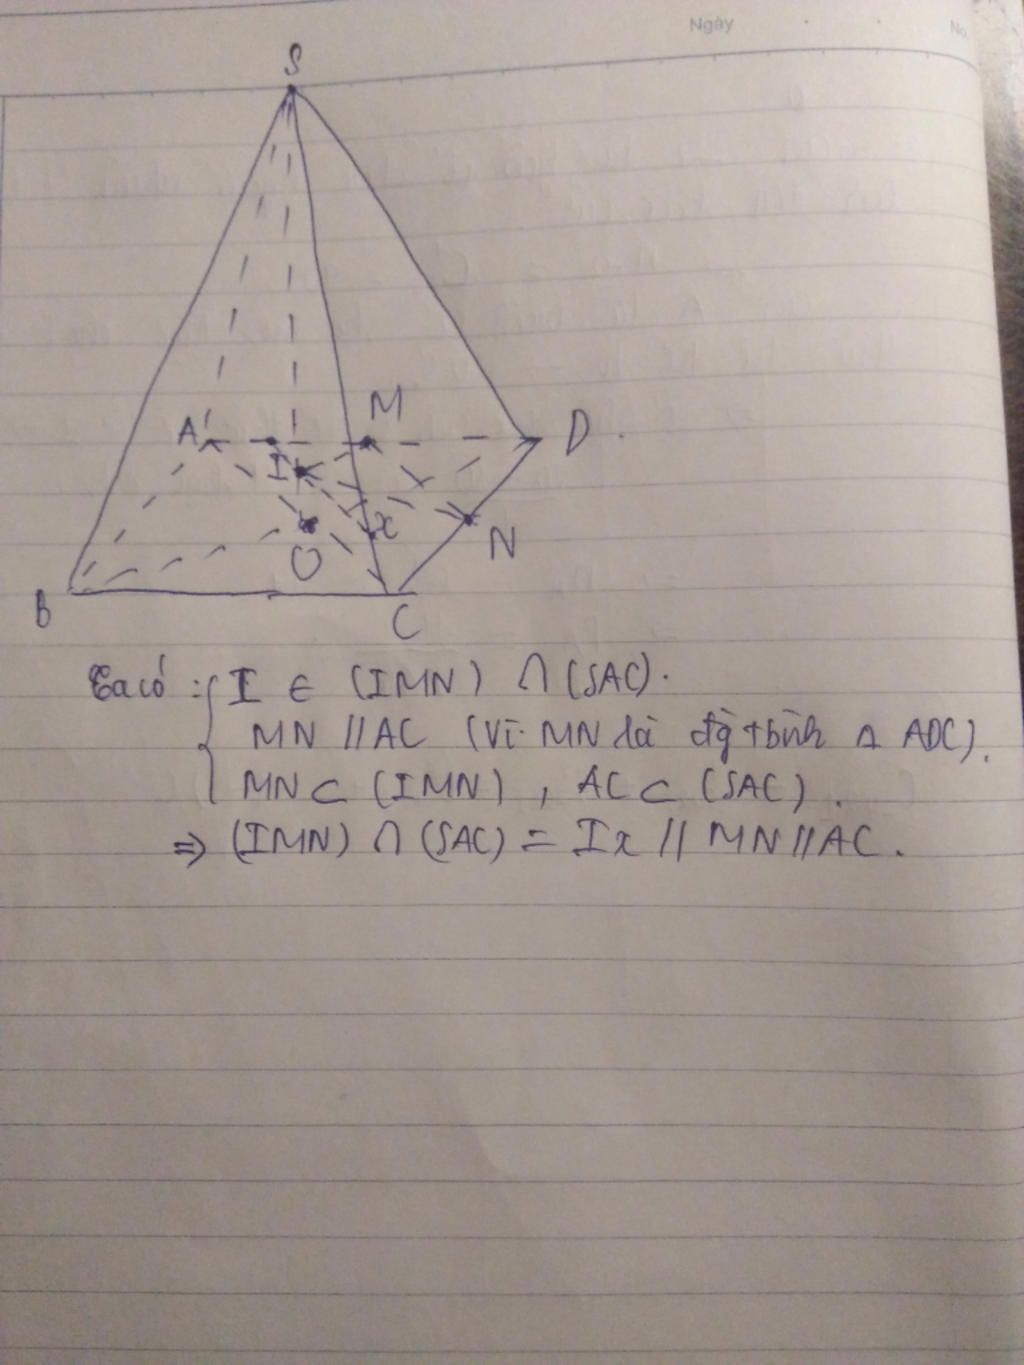 Ngày
No
S
A
M
D
I
x
N
O
B
C
Ta có : I ∈ (IMN) ∩ (SAC).
MN // AC (Vì MN là đg tbình Δ ADC).
MN ⊂ (IMN) , AC ⊂ (SAC) .
⇒ (IMN) ∩ (SAC) = Ix // MN // AC .